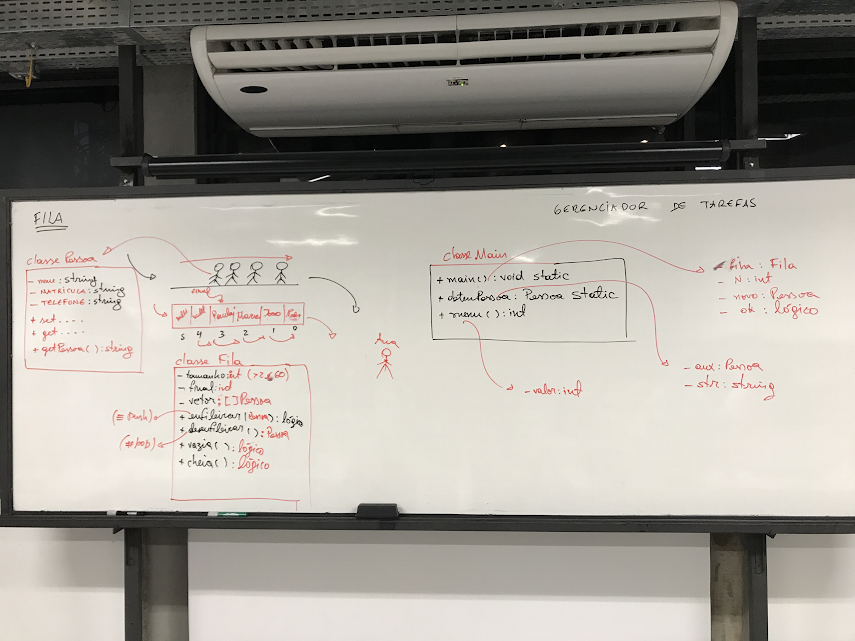 FILA
GERENCIADOR DE TAREFAS
classe Pessoa
- nome: string
- MATRÍCULA: string
- TELEFONE: string
+ set....
+ get....
+ getPessoa(): string
final
null null Paulo Maria João
5 4 3 2 1 0
Ana
classe Fila
- tamanho: int (>2 60)
- final: int
- vetor: [] Pessoa
+ enfileirar (Pessoa): lógico
+ desenfileirar (): Pessoa
+ vazia(): lógico
+ cheia(): lógico
(≡ push)
(≢ pop)
classe Main
+ main(): void static
+ obterPessoa: Pessoa Static
+ menu(): int
fila: Fila
- N: int
- novo: Pessoa
- ok: lógico
- aux: Pessoa
- str: string
- valor: int